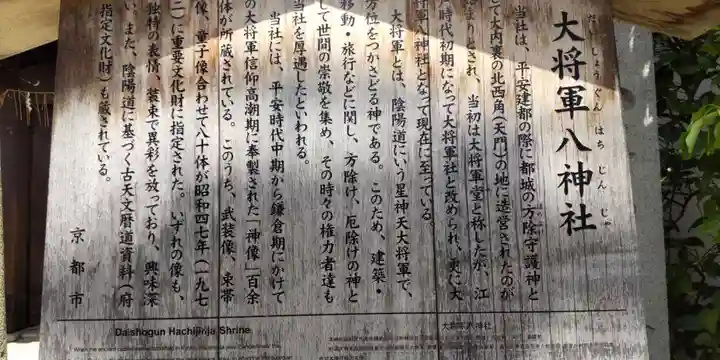 大将軍八神社
だいしょうぐんはちじんじゃ
当社は、平安建都の際に都城の方除守護神と
て大内裏の北西角(天門)の地に造営されたのが
まりとされ、当初は大将軍堂と称したが、江
時代初期になって大将軍社と改められ、更に大
将軍八神社となって現在に至っている。
大将軍とは、陰陽道にいう星神天大将軍で、
方位をつかさどる神である。このため、建築・
移動・旅行などに関し、方除け、厄除けの神と
して世間の崇敬を集め、その時々の権力者達も
当社を厚遇したといわれる。
当社には、平安時代中期から鎌倉期にかけて
の大将軍信仰高潮期に奉製された「神像」百余
体が所蔵されている。このうち、武装像、束帯
像、童子像合わせて八十体が昭和四七年(一九七
二)に重要文化財に指定された。いずれの像も、
独特の表情、装束で異彩を放っており、興味深
い。また、陰陽道に基づく古天文暦道資料(府
指定文化財)も蔵されている。
京都市
Daishogun Hachijinja Shrine
大将軍八神社